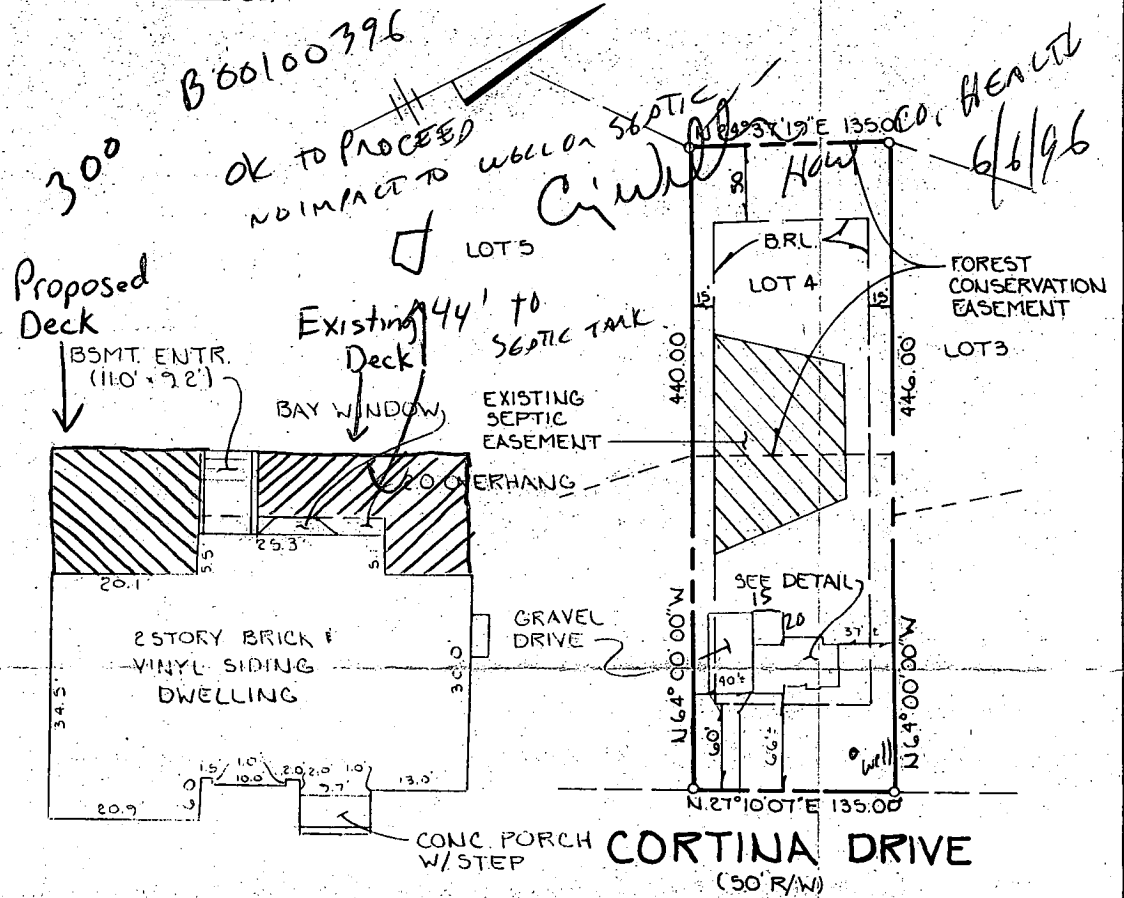 B00100396
30°
OK TO PROCEED
NO IMPACT TO WELL OR SEPTIC
CO. HEALTH
6/6/96
N 24°37'19"E 135.00'
50'
B.R.L.
LOT 4
15'
15'
FOREST
CONSERVATION
EASEMENT
LOT 5
LOT 3
440.00
446.00'
Proposed
Deck
Existing
Deck
44' to
SEPTIC TANK
BSMT. ENTR.
(11.0' x 9.2')
BAY WINDOW
EXISTING
SEPTIC
EASEMENT
2.0 OVERHANG
5.5
25.3'
5.1
20.1
2 STORY BRICK &
VINYL SIDING
DWELLING
34.5'
30.0'
GRAVEL
DRIVE
SEE DETAIL
15
20
37' ±
40' ±
60'
66' ±
N 64° 00' 00" W
N 64° 00' 00" W
well
1.5
1.0'
10.0'
2.0
2.0'
1.0'
9.7'
13.0'
6.0
20.9'
CONC. PORCH
W/ STEP
N.27°10'07"E 135.00'
CORTINA DRIVE
(50' R/W)